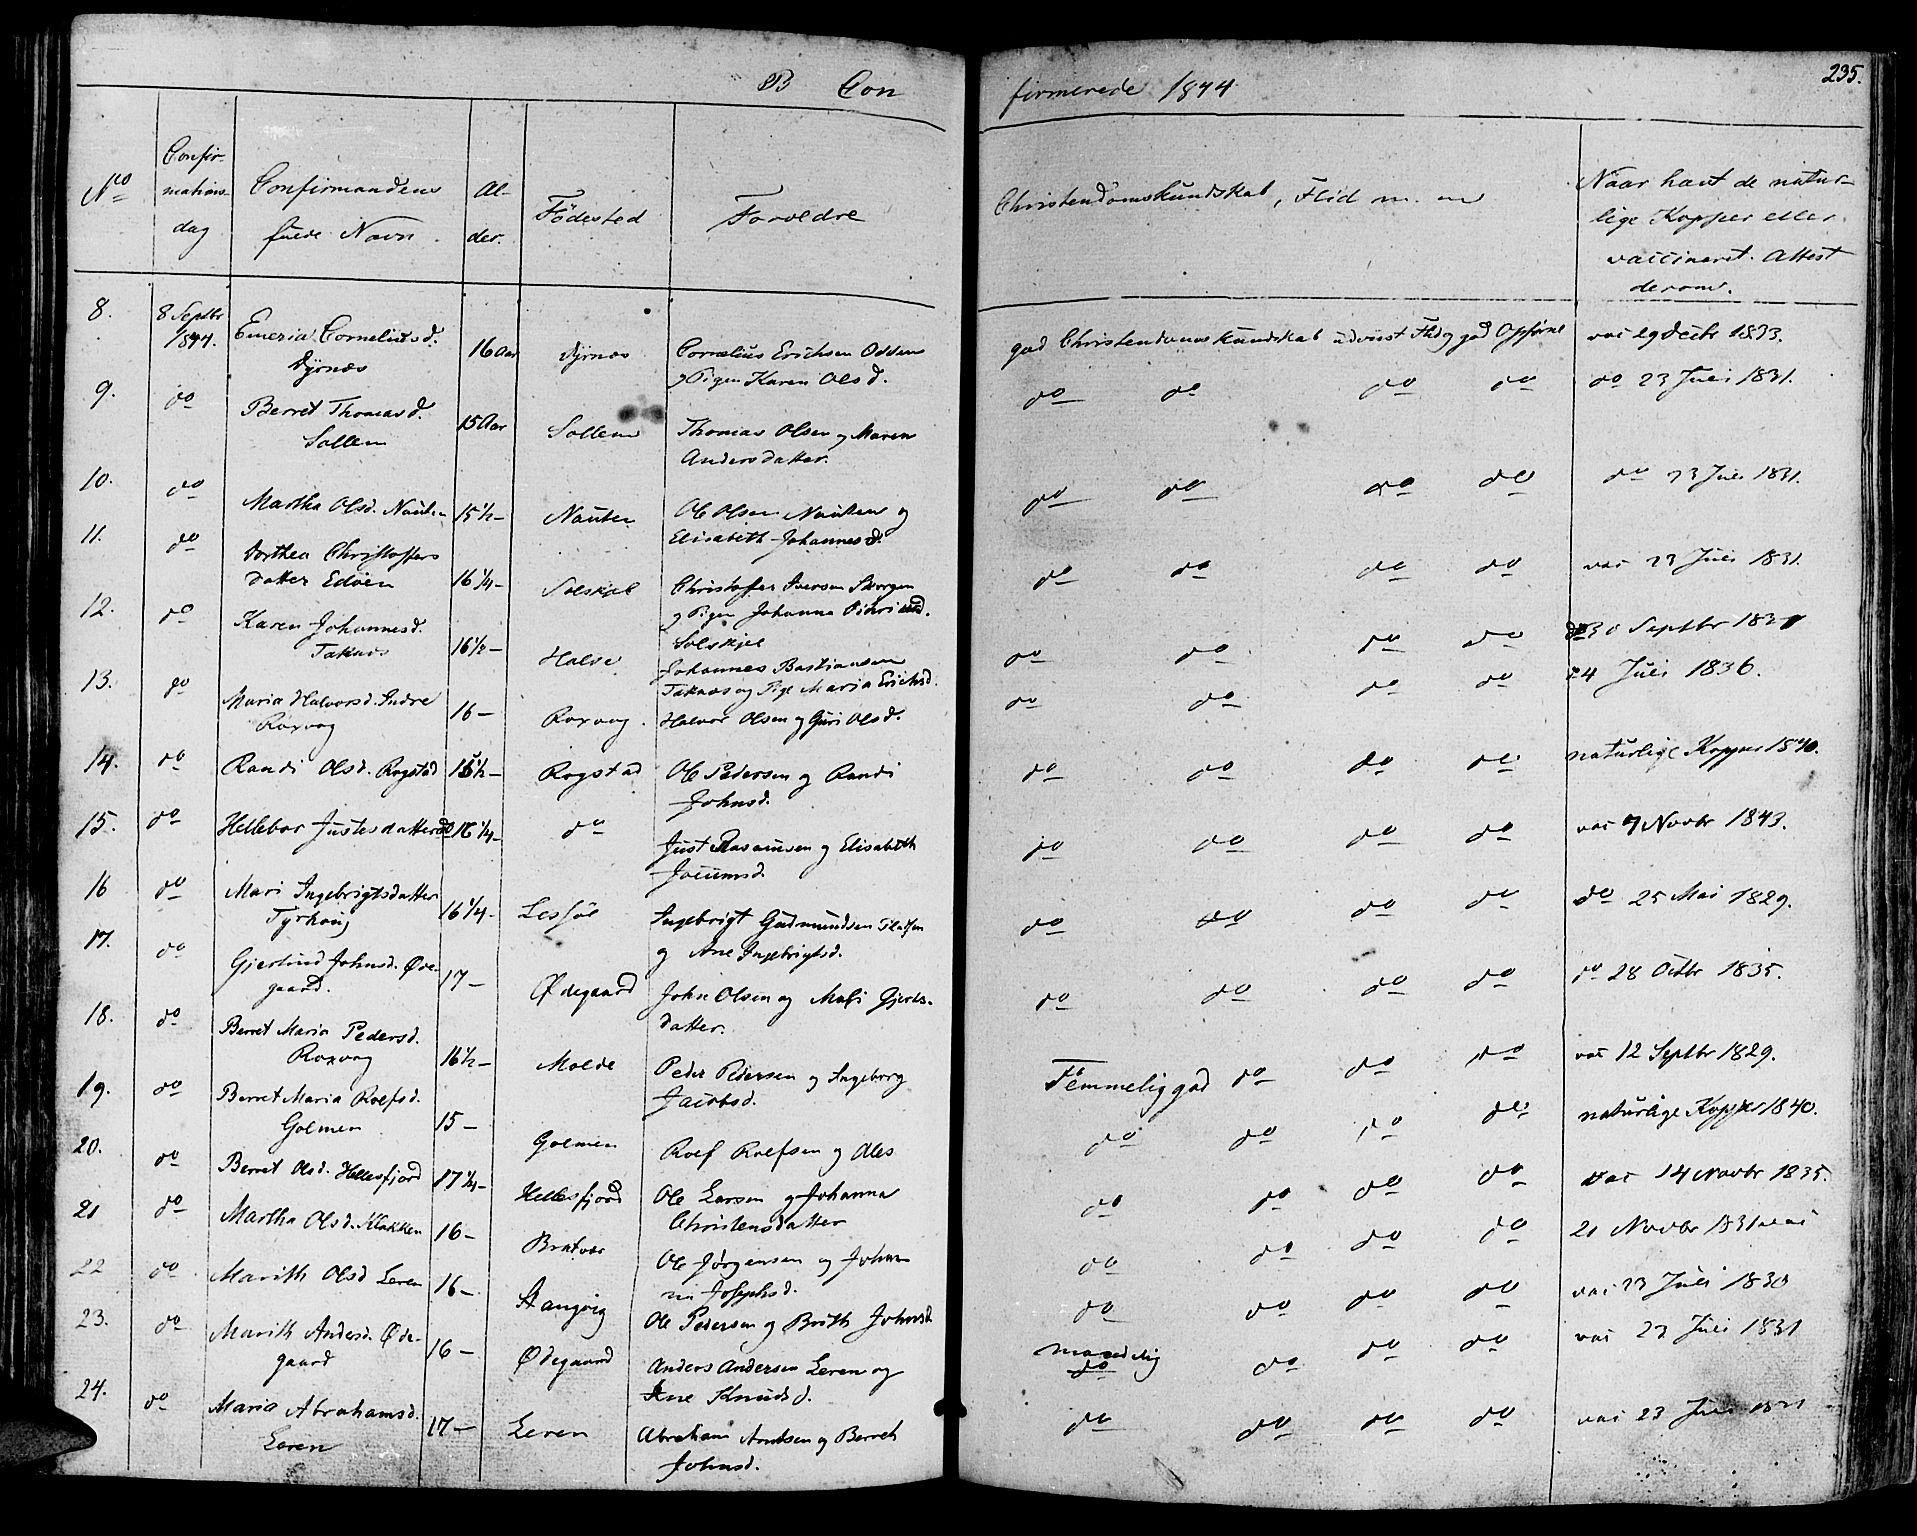 B Con
firmerede 1844.
235.
No
Confir-
mations-
dag
Confirmandens
fulde Navn.
Al-
der.
Fødested
Forældre
Christendomskundskab, Flid m. m
Naar havt de natur-
lige Kopper eller
vaccineret. Attest
derom.
8. 8 Septbr
1844. Emeria Corneliusd.
Dyrnæs 16 Aar Dyrnæs Cornelius Erichsen Odden
og Pigen Karen Olsd. god Christendomskundskab udviist Flid og god Opførsel vac 29 Decbr 1833.
9. do Berret Thomasd.
Sollem 15 Aar Sollem Thomas Olsen og Maren
Andersdatter. do do do do do 23 Juli 1831.
10. do Martha Olsd. Nausten 15½ – Nausten Ole Olsen Nausten og
Elisabeth Johannesd. do do do do do 23 Juli 1831.
11. do Dorthea Christoffers
datter Edøen 16¼ – Solskjel Christoffer Iversen Skorgen
og Pigen Johanna
Solskjel do do do do vac 23 Juli 1831.
12. do Karen Johannesd.
Taknæs 16½ – Halse Johannes Bastiansen
Taknæs og Pige Maria Erichsd. do do do do do 30 Septbr 1831
13. do Maria Halvorsd. Indre
Roxvog 16 – Roxvog. Halvor Olsen og Guri Olsd. do do do do 24 Juli 1836.
14. do Randi Olsd. Rogstad 15½ – Rogstad Ole Pedersen og Randi
Johnsd. do do do do naturlige Kopper 1840.
15. do Hellebor Justesdatter do 16¼ – do Just Rasmusen og Elisabeth
Jocumsd. do do do do vac 7 Novbr 1843.
16 do Mari Ingebrigtsdatter
Tyrhoug 16¼ – Ingebrigt Gudmundsen
og Ane Ingebrigtsd. do do do do do 25 Mai 1829.
17. do Gjertrud Johnsd. Øde-
gaard. 17 – Ødegaard John Olsen og Mali Gjerts-
datter. do do do do do 28 Octbr 1835.
18. do Berret Maria Pedersd.
Roxvog 16½ – Molde Peder Pedersen og Ingeborg
Jacobsd. Temmelig god do do do vac 12 Septbr 1829.
19. do Berret Maria Rolfsd.
Golmen 15 – Golmen Rolf Rolfsen og Ales do do do do naturlige Kopper 1840.
20. do Berret Olsd. Hellesfjord 17¼ – Hellesfjord Ole Larsen og Johanna
Christensdatter do do do do vac 14 Novbr 1835.
21 do Martha Olsd. Klakken 16 – Bratvær Ole Jørgensen og Johan
na Josephsd. do do do do 21 Novbr 1831 vac
22 do Marith Olsd Leren 16 – Stangvig Ole Pedersen og Brith Johnsd. do do do do vac 23 Juli 1830
23. do Marith Andersd. Øde-
gaard 16 – Ødegaard Anders Andersen Leren og
Ane Knudsd. maadelig
do do do do vac 23 Juli 1831
24. do Maria Abrahamsd.
Leren 17 – Leren Abraham Arntsen og Berreth
Johnsd. do do do do vac 23 Juli